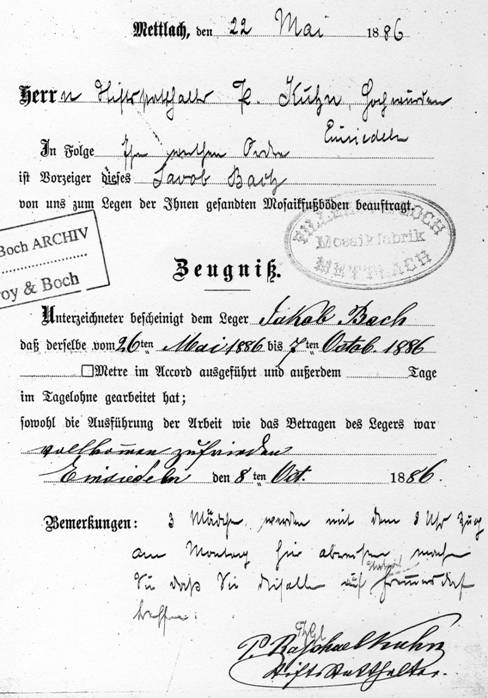 Mettlach, den 22 Mai 1886
Herrn Stiftsstatthalter P. Kuhn, Hochwürden
Einsiedeln
In Folge Ihrer werthen Ordre
ist Vorzeiger dieses Jacob Bach
von uns zum Legen der Ihnen gesandten Mosaikfußböden beauftragt.
VILLEROY & BOCH
Mosaikfabrik
METTLACH
Boch ARCHIV
oy & Boch
Zeugniß.
Unterzeichneter bescheinigt dem Leger Jakob Bach
daß derselbe vom 26ten Mai 1886 bis 7ten Octob. 1886
□Metre im Accord ausgeführt und außerdem Tage
im Tagelohne gearbeitet hat;
sowohl die Ausführung der Arbeit wie das Betragen des Legers war
vollkommen zufrieden
Einsiedeln den 8ten Oct. 1886.
Bemerkungen: 3 Mädchen werden mit dem 8 Uhr Zug
am Montag hier
Sie daß Sie dieselben auf
treffen.
P. Raphael Kuhn
Stiftsstatthalter.